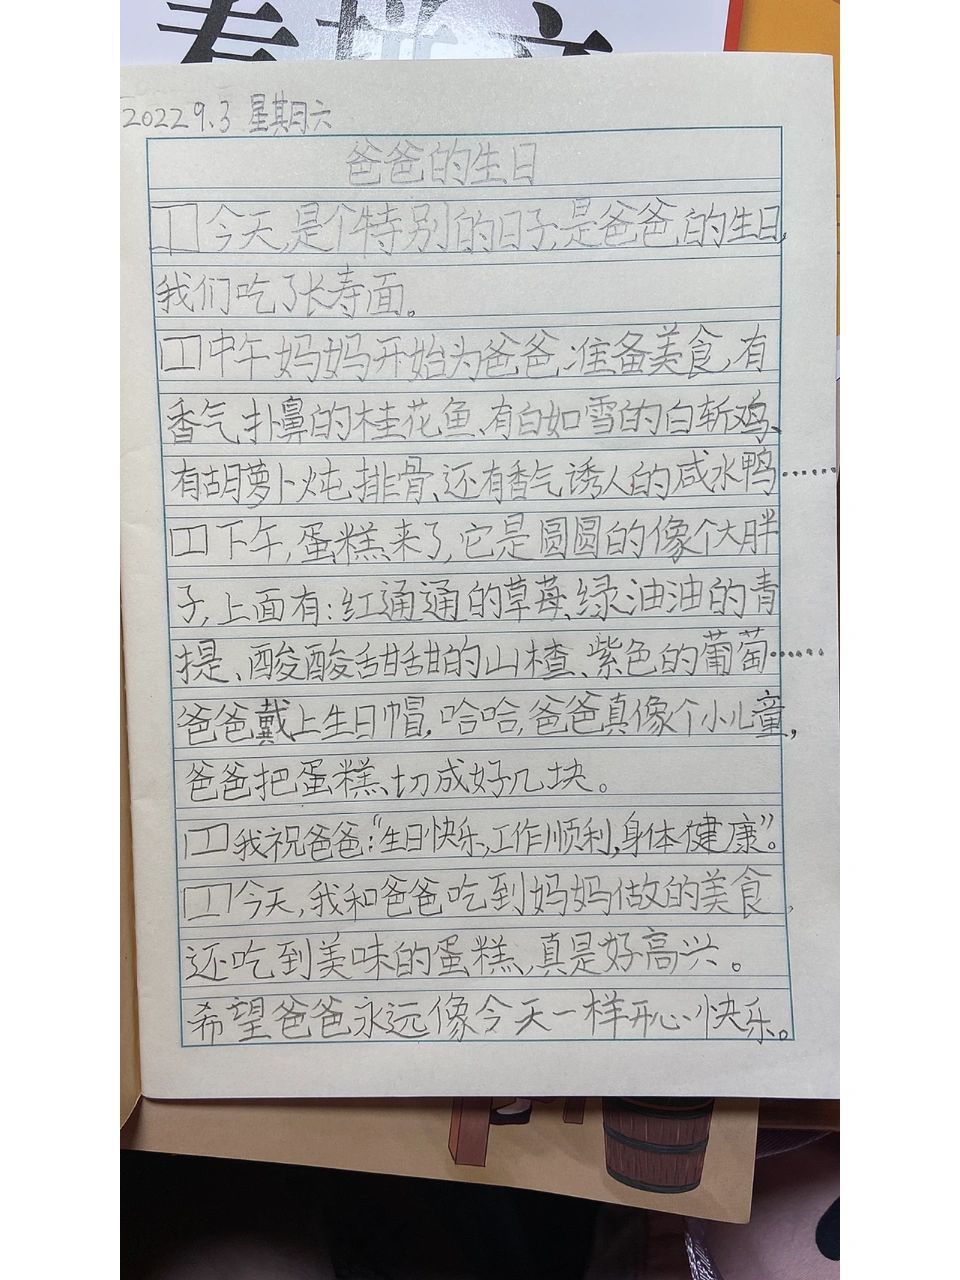 2022 9.3 星期六
爸爸的生日
今天,是个特别的日子,是爸爸的生日,
我们吃了长寿面。
中午妈妈开始为爸爸准备美食,有
香气扑鼻的桂花鱼、有白如雪的白斩鸡、
有胡萝卜炖排骨、还有香气诱人的咸水鸭……
下午,蛋糕来了,它是圆圆的像个大胖
子,上面有:红通通的草莓、绿油油的青
提、酸酸甜甜的山楂、紫色的葡萄……
爸爸戴上生日帽,哈哈,爸爸真像个小儿童,
爸爸把蛋糕切成好几块。
我祝爸爸:“生日快乐,工作顺利,身体健康”。
今天,我和爸爸吃到妈妈做的美食,
还吃到美味的蛋糕,真是好高兴。
希望爸爸永远像今天一样开心快乐。